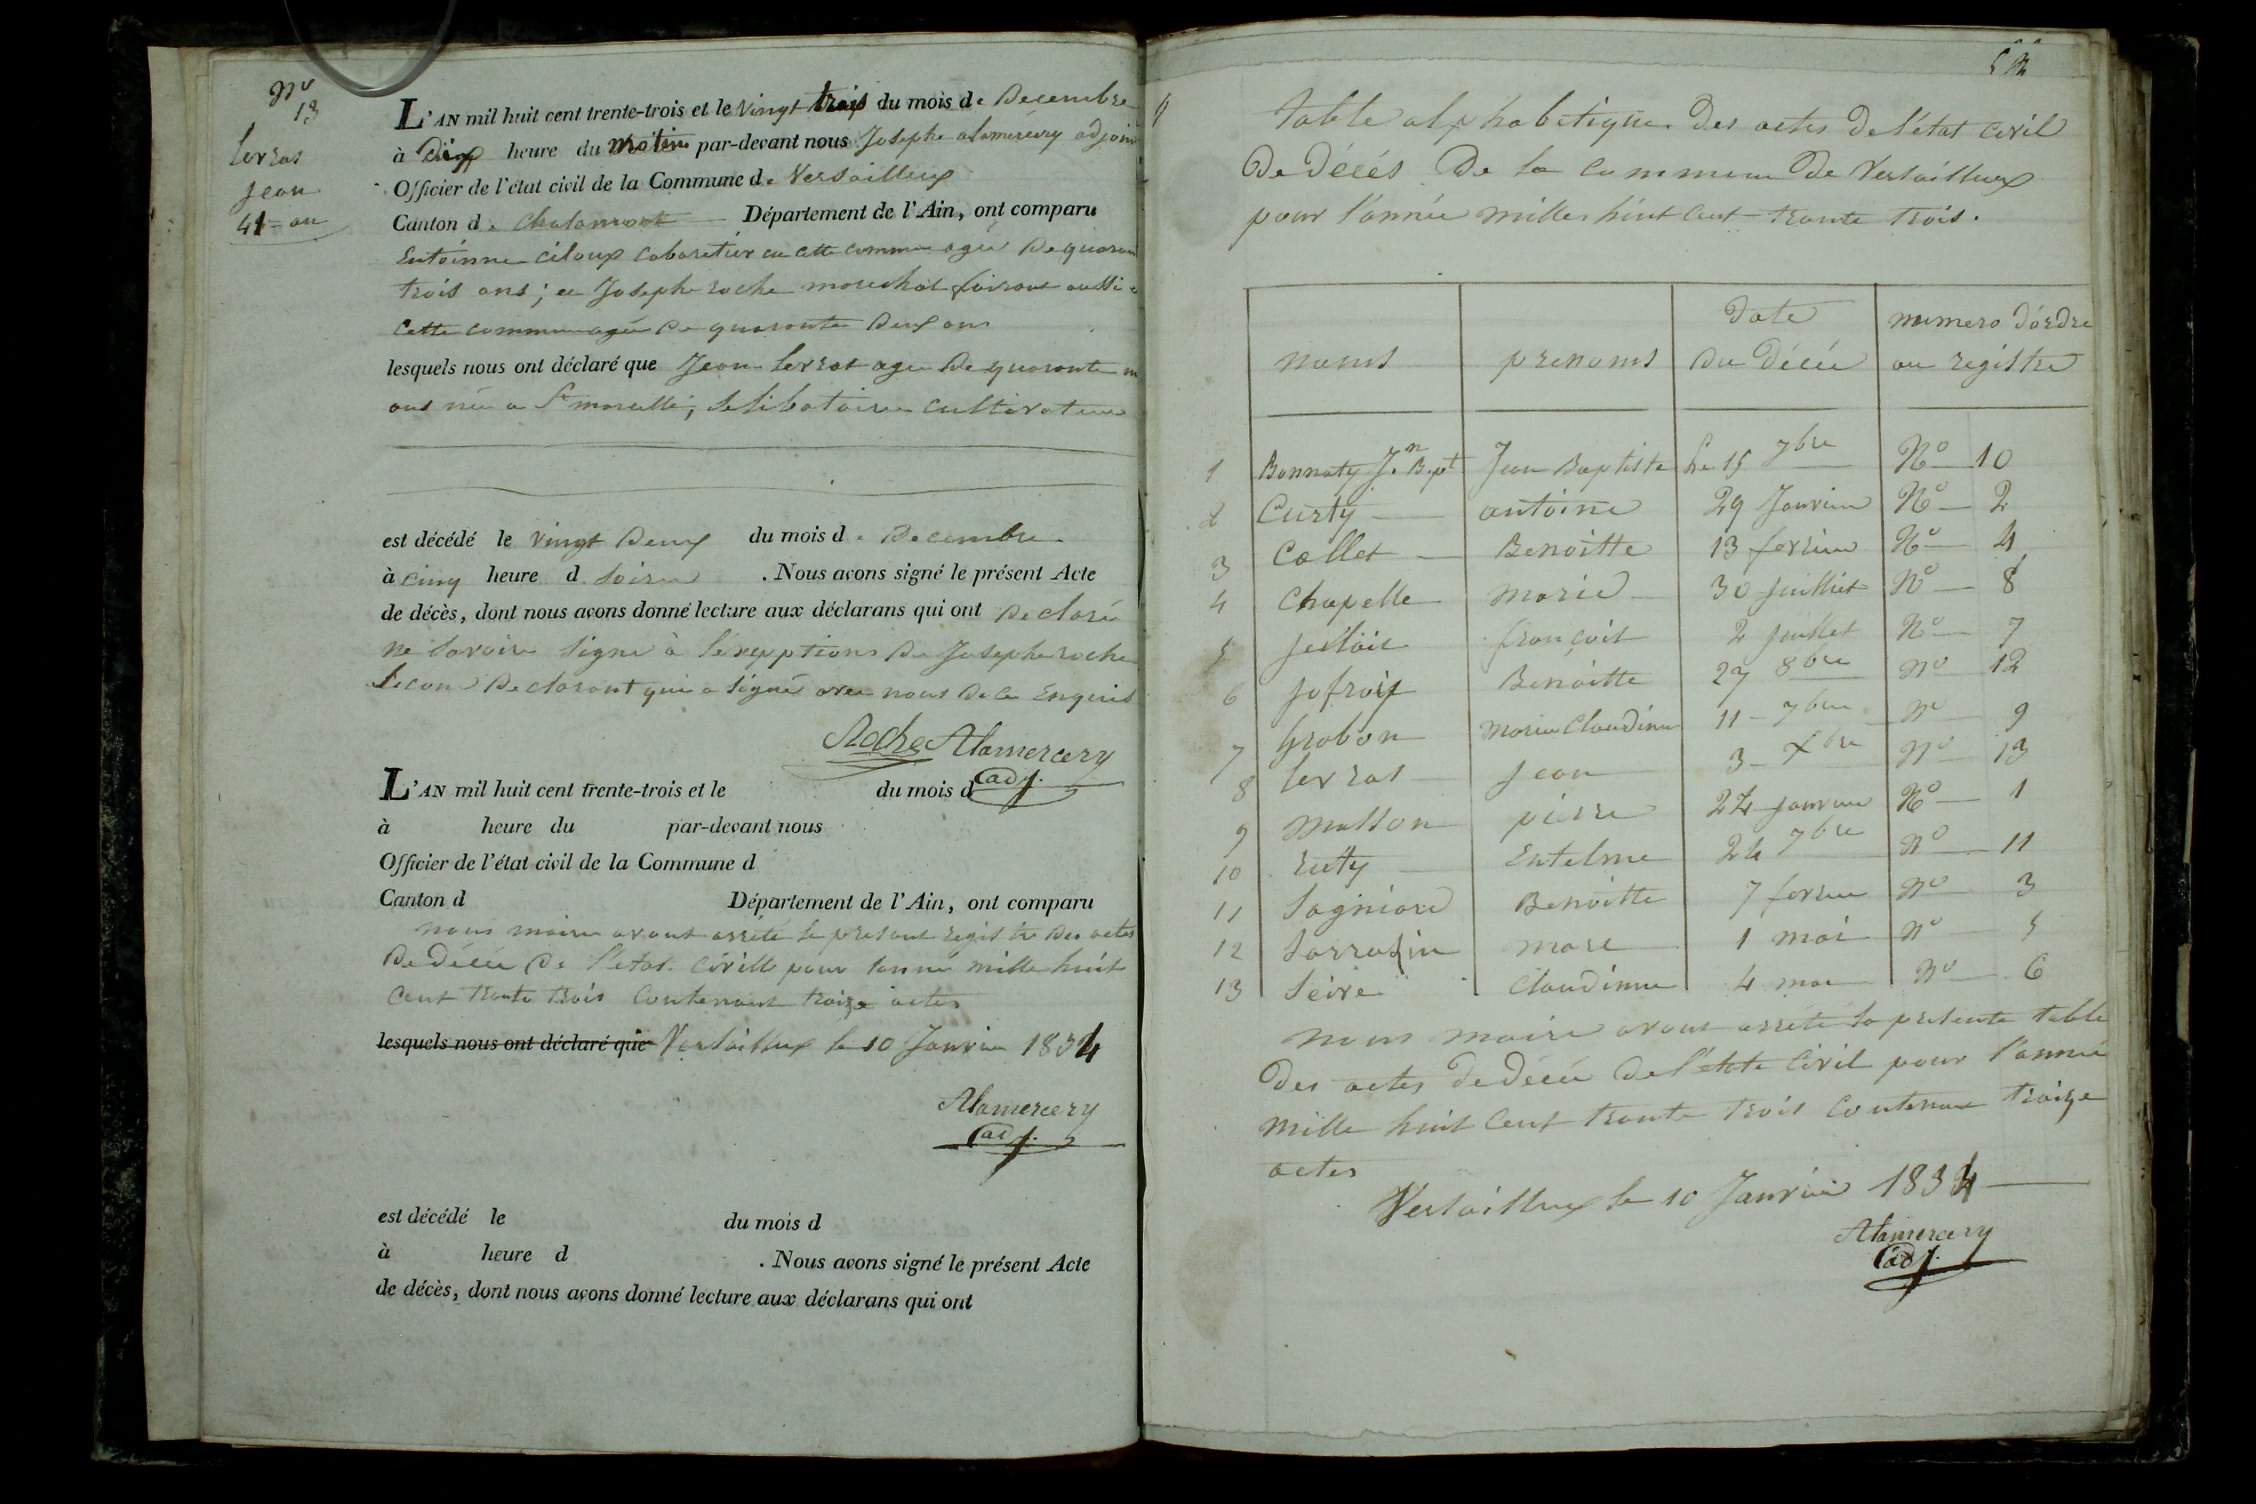 No
13
Lerras
Jean
41 an
L'AN mil huit cent trente-trois et le vingt trois du mois de Decembre
à dix heure du matin par-devant nous Josephe alamercery adjoin
Officier de l'état civil de la Commune de Versailleux
Canton de Chalamont Département de l'Ain, ont comparu
cabaretier en cette commune agé De quaran
trois ans; et Josephe roche marechal fairant aussi
cette commune agée De quarante Deux ans
lesquels nous ont déclaré que Jean Lerras age De quarante un
ans née a St marcelle, selibataire cultivateur
est décédé le vingt Deux du mois de Decembre
à cinq heure d soire . Nous avons signé le présent Acte
de décès, dont nous avons donné lecture aux déclarans qui ont Declaré
ne savoir signe à l'exepptions De Josephe roche
Second Declarant qui a signé avec nous De ce Enquis
Roche Alamercery
adj.
L'AN mil huit cent trente-trois et le du mois d
à heure du par-devant nous
Officier de l'état civil de la Commune d
Canton d Département de l'Ain, ont comparu
nous maire avons arrêté le present registre Des actes
De Décée De l'etat civille pour lanné mille huit
cent trante trois contenant traize actes
lesquels nous ont déclaré que Versailleux le 10 Janvier 1834
Alamercery
adj.
est décédé le du mois d
à heure d . Nous avons signé le présent Acte
de décès, dont nous avons donné lecture aux déclarans qui ont
table alphabetique Des actes De l'état civil
De Décés De la commune De Versailleux
pour l'année mille huit cent trante trois.
noms prenoms Date Du Décée numero d'órdre au registre
1 Bonnaty Jn Bapt Jean Baptiste Le 15 7bre No 10
2 Curty antoine 29 Janvier No 2
3 Collet Benoitte 13 fevrier No 4
4 Chapelle marie 30 juilliet No 8
5 françois 2 juillet No 7
6 jofroix Benoitte 27 8bre no 12
7 Grobon marie Claudine 11 7bre no 9
8 Lerras jean 3 Xbre no 13
9 Masson pierre 24 janvier No 1
10 ruty Entelme 24 7bre no 11
11 Sagniard Benoitte 7 fevrier no 3
12 Sarrasin marc 1 mai no 5
13 Seive Claudinne 4 mai no 6
nous maire avons arrete la presente table
Des actes De Décée De l'état civil pour l'année
mille huit cent trante trois contenant traize
actes
Versailleux le 10 Janvier 1834
Alamercery
adj.